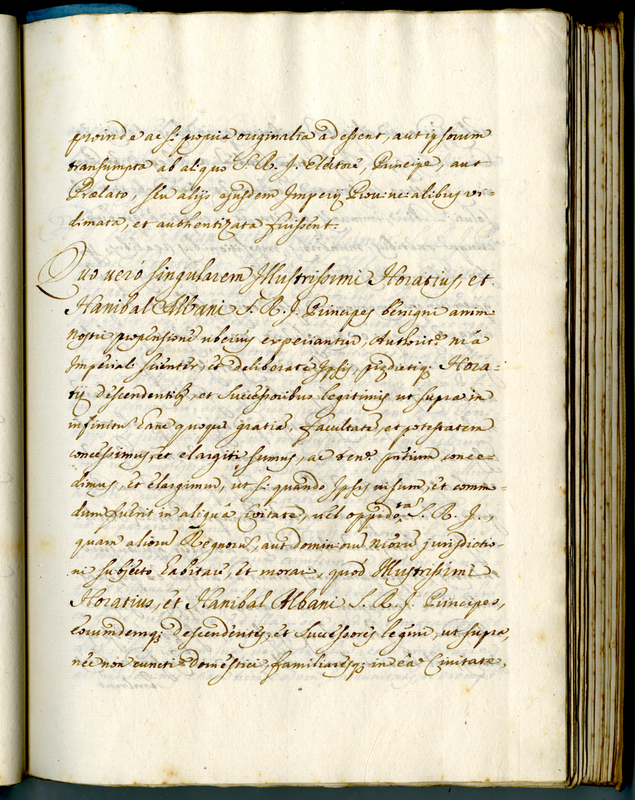 proinde ac si propria originalia adessent, aut ipsorum
transumpta ab aliquo S. R. I. Electore, Principe, aut
Prælato, seu alijs ejusdem Imperij Provincialibus vi-
dimata, et authentizata fuissent.
Quo verò singularem Illustrissimi Horatius, et
Hanibal Albani S. R. I. Principes benignè animi
Nostri propensionē uberius experiantur, Authorite. nr̄a
Imperiali scienter, et deliberatè Ipsis, prædictiq; Hora-
tij descendentib, et Successoribus legitimis ut supra in
infinitū hanc quoque gratiā, facultatē, et potestatem
concessimus, et elargiti sumus, ac ten. pn̄tium conce-
dimus, et elargimur, ut si quando Ipsis visum, et commo-
dum fuerit in aliquâ Civitate, vel oppido, tā S. R. I.,
quam aliorū Regnorū, aut dominiorū nr̄orū jurisdictio-
ni subjecto habitare, et morari, quòd Illustrissimi
Horatius, et Hanibal Albani S. R. I. Principes,
eorumdemq; descendentes, et Successores legitimi, ut supra,
nec non cuncti domestici, familiaresq; in eâ Civitate,